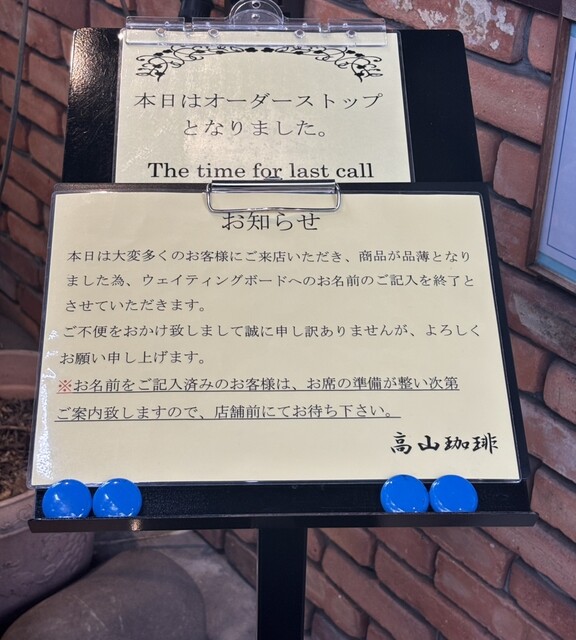 本日はオーダーストップ
となりました。
The time for last call
お知らせ
本日は大変多くのお客様にご来店いただき、商品が品薄となり
ました為、ウェイティングボードへのお名前のご記入を終了と
させていただきます。
ご不便をおかけ致しまして誠に申し訳ありませんが、よろしく
お願い申し上げます。
※お名前をご記入済みのお客様は、お席の準備が整い次第
ご案内致しますので、店舗前にてお待ち下さい。
高山珈琲